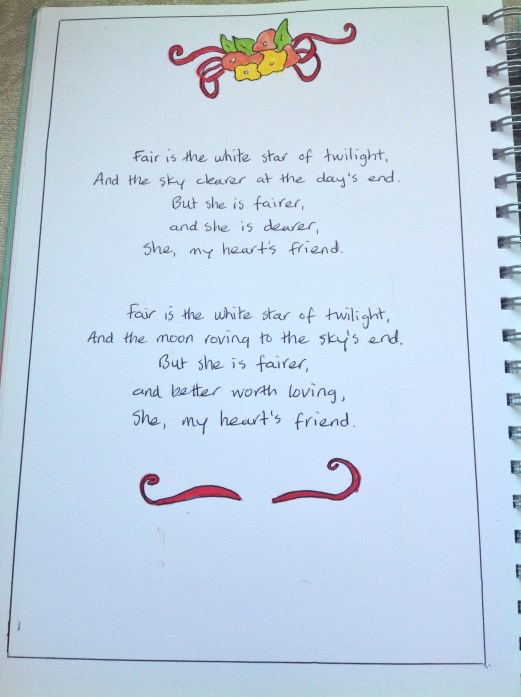 Fair is the white star of twilight,
And the sky clearer at the day's end.
But she is fairer,
and she is dearer,
She, my heart's friend.
Fair is the white star of twilight,
And the moon roving to the sky's end.
But she is fairer,
and better worth loving,
She, my heart's friend.